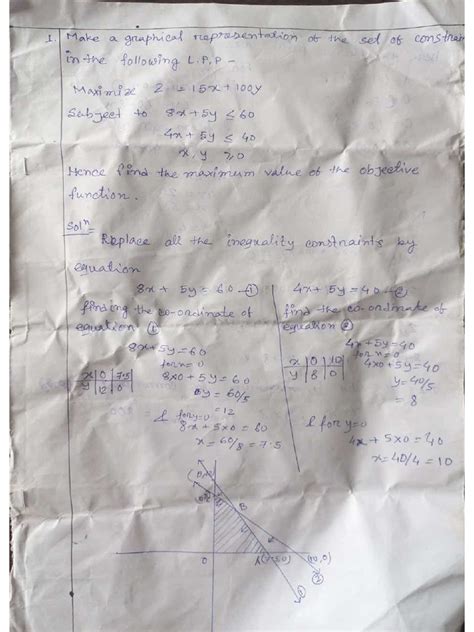 1. Make a graphical representation of the set of constrain
in the following L.P.P -
Maximiz Z = 15x + 100y
Subject to 8x + 5y ≤ 60
4x + 5y ≤ 40
x, y ≥ 0
Hence find the maximum value of the objective
function.
Solⁿ=
Replace all the inequality constraints by
equation
8x + 5y = 60 - ①
finding the co-ordinate of
equation ①
8x + 5y = 60
for x = 0
8x0 + 5y = 60
x | 0 | 7.5
y | 12 | 0
y = 60/5
= 12
& for y = 0
8x + 5x0 = 60
x = 60/8 = 7.5
4x + 5y = 40 - ②
find the co-ordinate of
equation ②
4x + 5y = 40
for x = 0
x | 0 | 10
y | 8 | 0
4x0 + 5y = 40
y = 40/5
= 8
& for y = 0
4x + 5x0 = 40
x = 40/4 = 10
B
O
A(7.5,0)
(10,0)
①
②